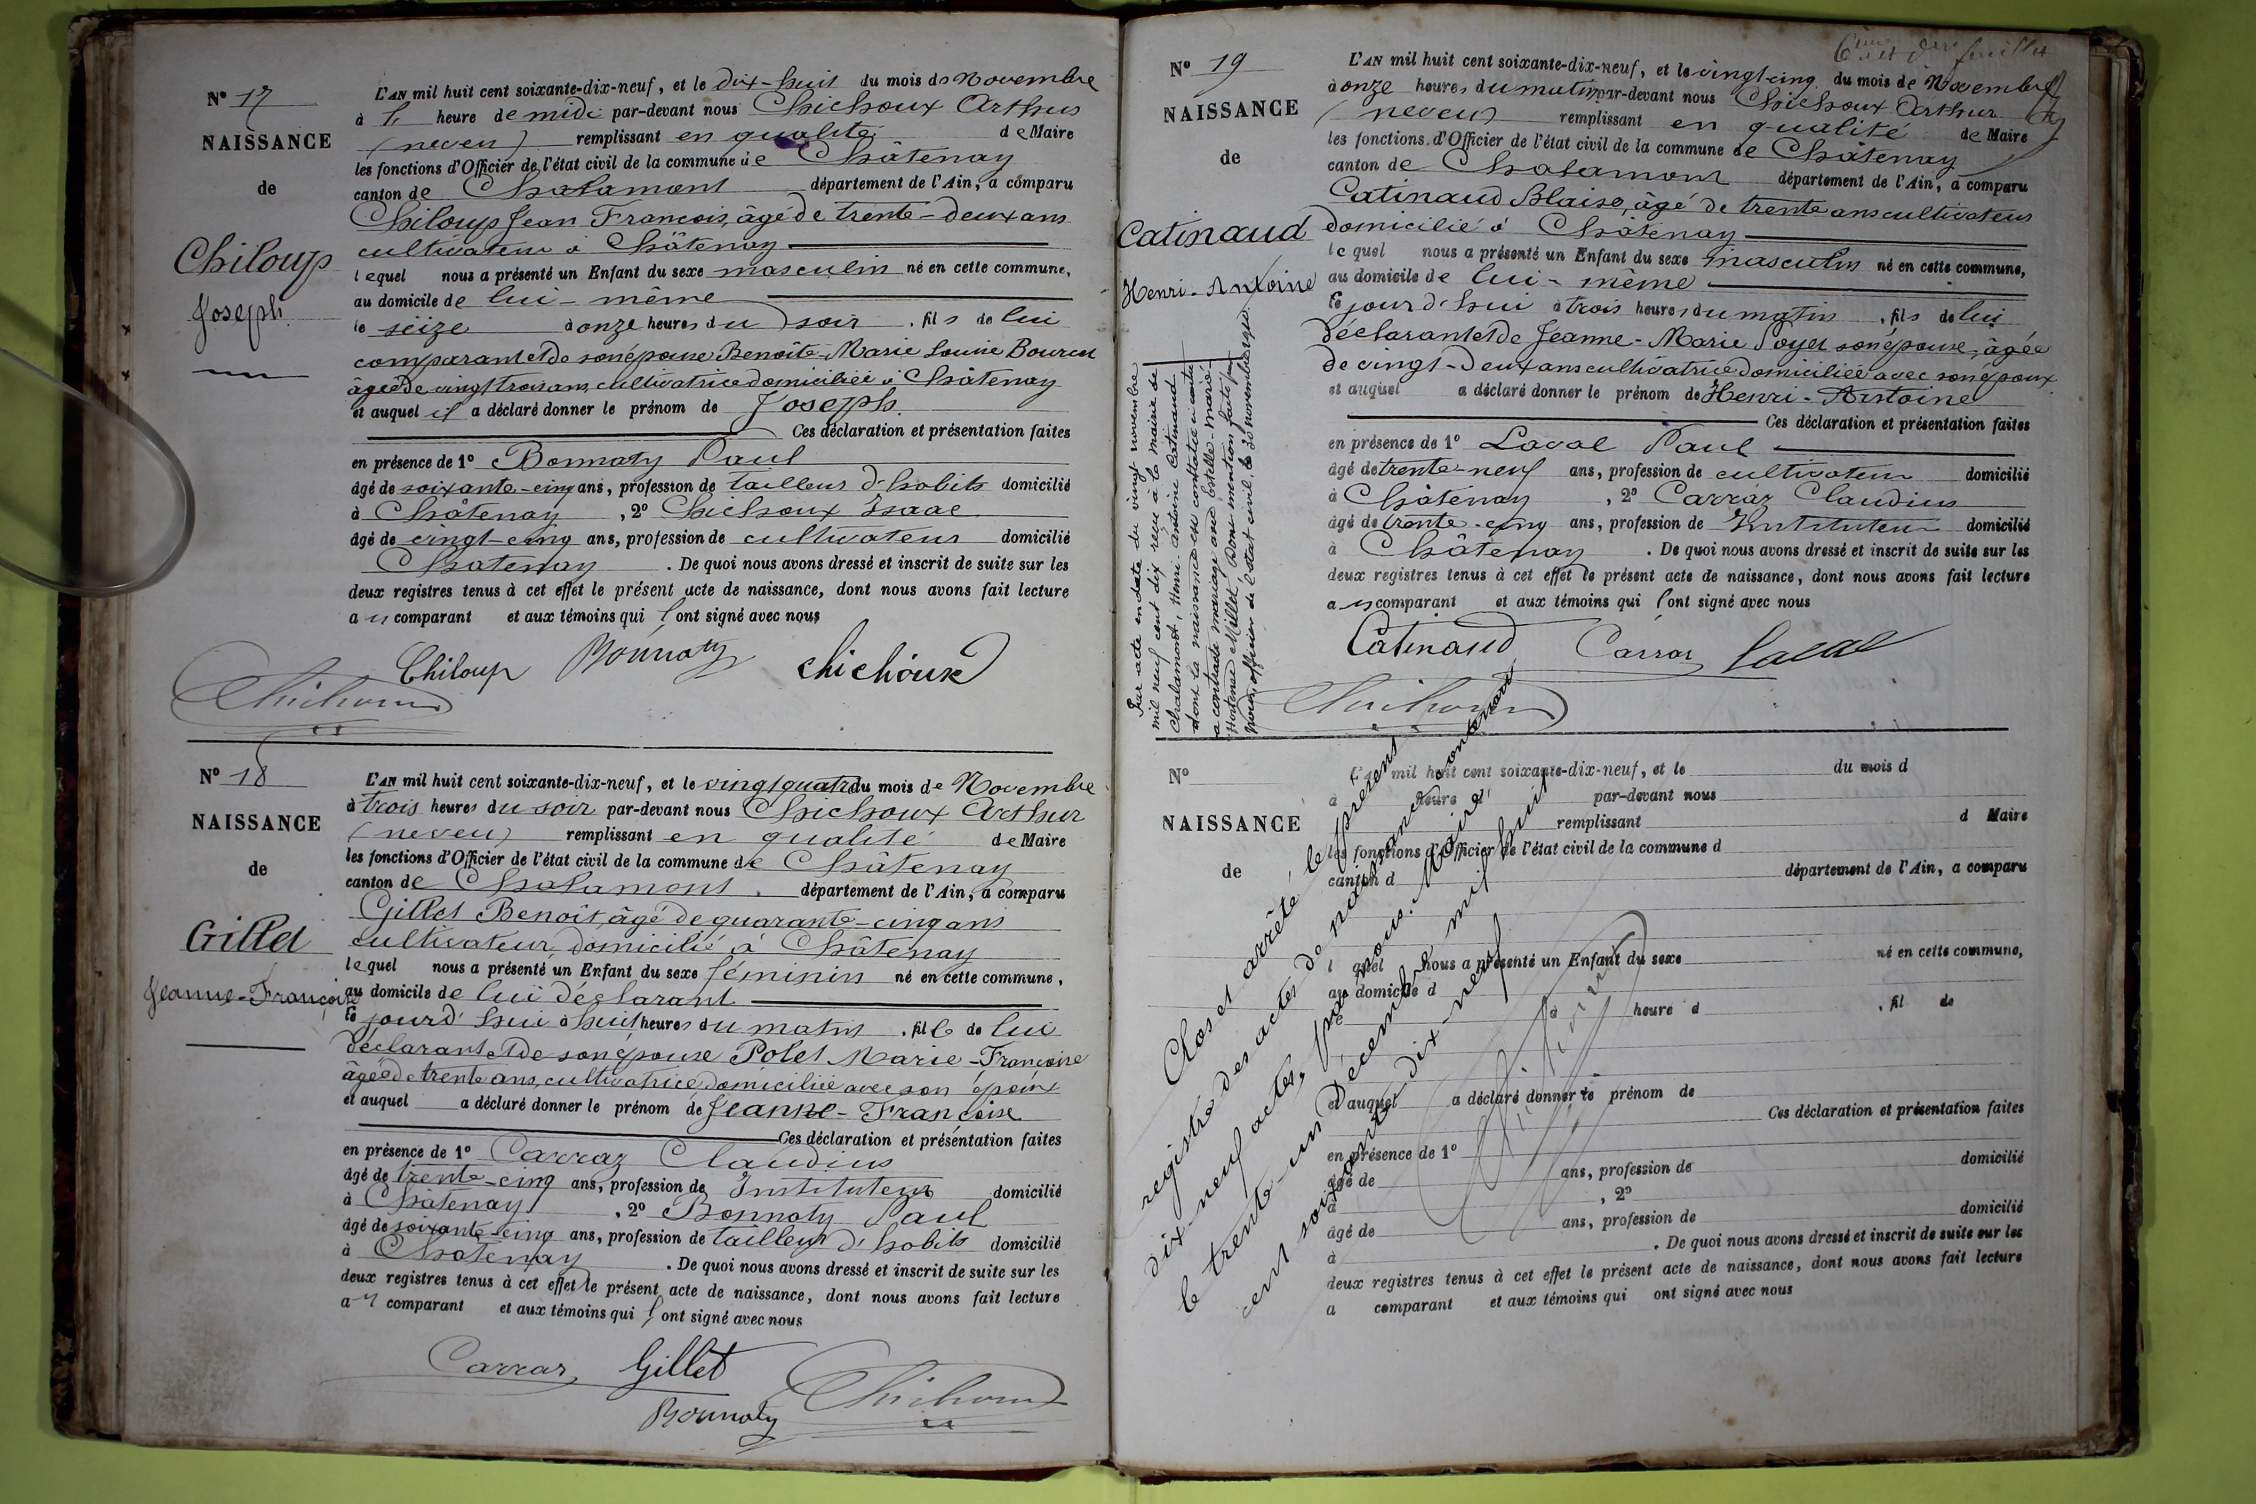 N° 17
NAISSANCE
de
Chiloup
Joseph
L'AN mil huit cent soixante-dix-neuf, et le dix-huit du mois de Novembre
à heure de midi par-devant nous Chichoux Arthur
(neveu) remplissant en qualité de Maire
les fonctions d'Officier de l'état civil de la commune de Châtenay
canton de Chalamont département de l'Ain, a comparu
Chiloup Jean François, âgé de trente-deux ans
cultivateur à Châtenay
lequel nous a présenté un Enfant du sexe masculin né en cette commune,
au domicile de lui-même
le seize à onze heures du soir , fils de lui
comparant et de son épouse Benoîte-Marie Louise
âgée de vingt trois ans, cultivatrice domiciliée à Châtenay
et auquel il a déclaré donner le prénom de Joseph.
Ces déclaration et présentation faites
en présence de 1° Bonnaty Paul
âgé de soixante-cinq ans, profession de tailleur d'habits domicilié
à Châtenay , 2° Chichoux Isaac
âgé de vingt-cinq ans, profession de cultivateur domicilié
Chatenay . De quoi nous avons dressé et inscrit de suite sur les
deux registres tenus à cet effet le présent acte de naissance, dont nous avons fait lecture
au comparant et aux témoins qui l'ont signé avec nous
Chiloup Bonnaty chichoux
Chichoux
N° 18
NAISSANCE
de
Gillet
Jeanne-Françoise
L'AN mil huit cent soixante-dix-neuf, et le vingt quatre du mois de Novembre
à trois heures du soir par-devant nous Chichoux Arthur
(neveu) remplissant en qualité de Maire
les fonctions d'Officier de l'état civil de la commune de Châtenay
canton de Chalamont département de l'Ain, a comparu
Gillet Benoît, âgé de quarante-cinq ans
cultivateur, domicilié à Châtenay
lequel nous a présenté un Enfant du sexe féminin né en cette commune,
au domicile de lui déclarant
le jourd'hui à huit heures du matin , fille de lui
déclarant et de son épouse Polet Marie-Françoise
âgée de trente ans, cultivatrice, domiciliée avec son époux
et auquel a déclaré donner le prénom de Jeanne-Françoise
Ces déclaration et présentation faites
en présence de 1° Carraz Claudius
âgé de trente-cinq ans, profession de Instituteur domicilié
à Châtenay , 2° Bonnaty Paul
âgé de soixante-cinq ans, profession de tailleur d'habits domicilié
à Chatenay . De quoi nous avons dressé et inscrit de suite sur les
deux registres tenus à cet effet le présent acte de naissance, dont nous avons fait lecture
au comparant et aux témoins qui l'ont signé avec nous
Carraz Gillet
Bonnaty Chichoux
feuillet
N° 19
NAISSANCE
de
Catinaud
Henri-Antoine
Par acte en date du vingt novembre
mil neuf cent dix reçu à la mairie de
Chalamont, Henri-Antoine Catinaud
dont la naissance est constatée ci-contre
a contracté mariage avec Estelle-Marie
Hortense Millet. Dont mention faite par
Nous, officier de l'état civil, le 30 novembre 1910.
L'AN mil huit cent soixante-dix-neuf, et le vingt-cinq du mois de Novembre
à onze heures du matin par-devant nous Chichoux Arthur
(neveu) remplissant en qualité de Maire
les fonctions d'Officier de l'état civil de la commune de Châtenay
canton de Chalamont département de l'Ain, a comparu
Catinaud Blaise, âgé de trente ans cultivateur
domicilié à Châtenay
lequel nous a présenté un Enfant du sexe masculin né en cette commune,
au domicile de lui-même
le jourd'hui à trois heures du matin , fils de lui
déclarant et de Jeanne-Marie Poyet son épouse, âgée
de vingt-deux ans cultivatrice domiciliée avec son époux
et auquel a déclaré donner le prénom de Henri-Antoine
Ces déclaration et présentation faites
en présence de 1° Laval Paul
âgé de trente-neuf ans, profession de cultivateur domicilié
à Châtenay , 2° Carraz Claudius
âgé de trente-cinq ans, profession de Instituteur domicilié
à Châtenay . De quoi nous avons dressé et inscrit de suite sur les
deux registres tenus à cet effet le présent acte de naissance, dont nous avons fait lecture
au comparant et aux témoins qui l'ont signé avec nous
Catinaud Carraz Laval
Chichoux
N°
NAISSANCE
de
L'AN mil huit cent soixante-dix-neuf, et le du mois d
à heure d par-devant nous
remplissant d Maire
les fonctions d'Officier de l'état civil de la commune d
canton d département de l'Ain, a comparu
l quel nous a présenté un Enfant du sexe né en cette commune,
au domicile d
le à heure d , fil de
et auquel a déclaré donner le prénom de
Ces déclaration et présentation faites
en présence de 1°
âgé de ans, profession de domicilié
à , 2°
âgé de ans, profession de domicilié
à . De quoi nous avons dressé et inscrit de suite sur les
deux registres tenus à cet effet le présent acte de naissance, dont nous avons fait lecture
a comparant et aux témoins qui ont signé avec nous
Clos et arrêté le présent
registre des actes de naissance contenant
dix-neuf actes, par nous, Maire
le trente-un Décembre mil huit
cent soixante-dix-neuf
Chichoux